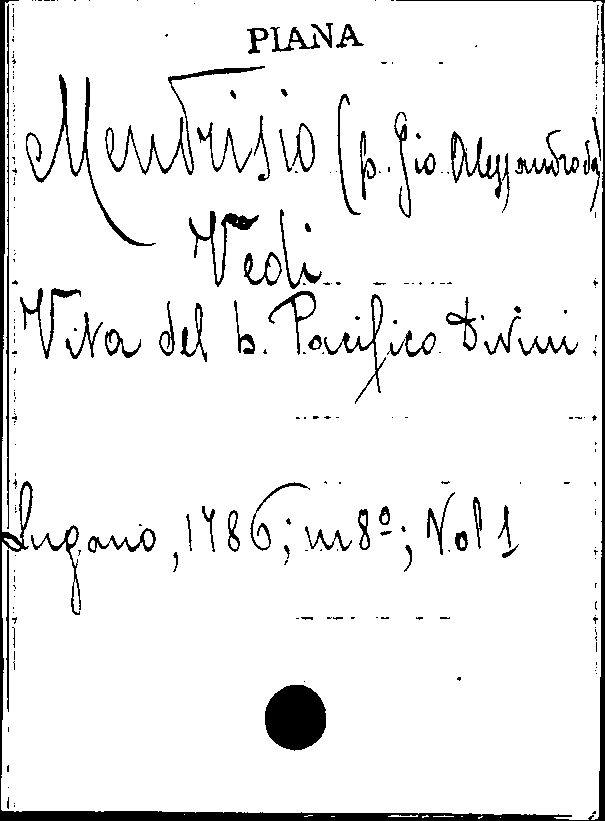 PIANA
Mendrisio (p. Gio Alessandro da)
Vedi
Vita del b. Pacifico Divini
Lugano, 1786; in 8º; Vol 1